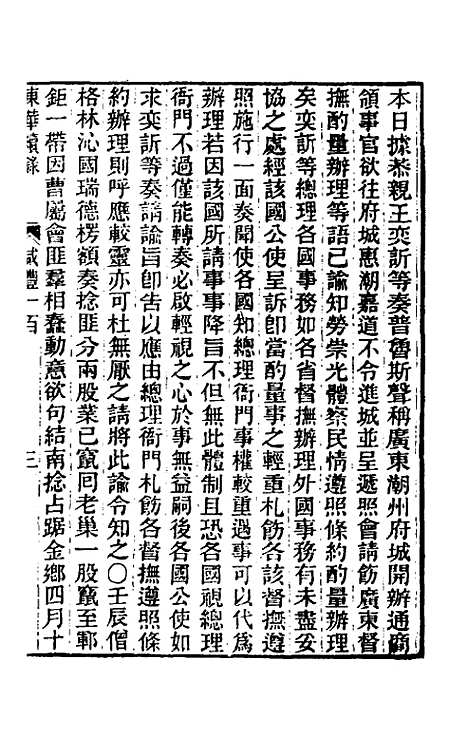 本日據恭親王奕訢等奏普魯斯聲稱廣東潮州府城開辦通商
領事官欲往府城惠潮嘉道不令進城並呈遞照會請飭廣東督
撫酌量辦理等語已諭知勞崇光體察民情遵照條約酌量辦理
矣奕訢等總理各國事務如各省督撫辦理外國事務有未盡妥
協之處經該國公使呈訴卽當酌量事之輕重札飭各該督撫遵
照施行一面奏聞使各國知總理衙門事權較重遇事可以代爲
辦理若因該國所請事事降旨不但無此體制且恐各國視總理
衙門不過僅能轉奏必啟輕視之心於事無益嗣後各國公使如
求奕訢等奏請諭旨卽告以應由總理衙門札飭各督撫遵照條
約辦理則呼應較靈亦可杜無厭之請將此諭令知之〇壬辰僧
格林沁國瑞德楞額奏捻匪分兩股葉已竄回老巢一股竄至鄆
鉅一帶因曹屬會匪羣相蠢動意欲勾結南捻占踞金鄉四月十
東華續錄 咸豐一百 三